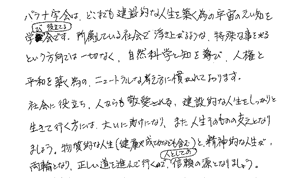 バラナ学会は、どこまでも建設的な人生を築く為の宇宙のえい知を
学が役立てる会です。所属している社会で浮き上がるような、特殊な事をする
という方向では一切なく、自然科学と知を尊び、人権と
平和を築く為の、ニュートラルな考え方に慣れております。
社会に役立ち、人からも敬愛される、建設的な人生をしっかりと
生きて行く方には、大いに助けになり、また人生そのものの支えとなり
ましょう。物質的な人生(健康や成功なども含む)と精神的な人生が、
両輪となり、正しい道を進んで行く人としての、信頼の源となりましょう。